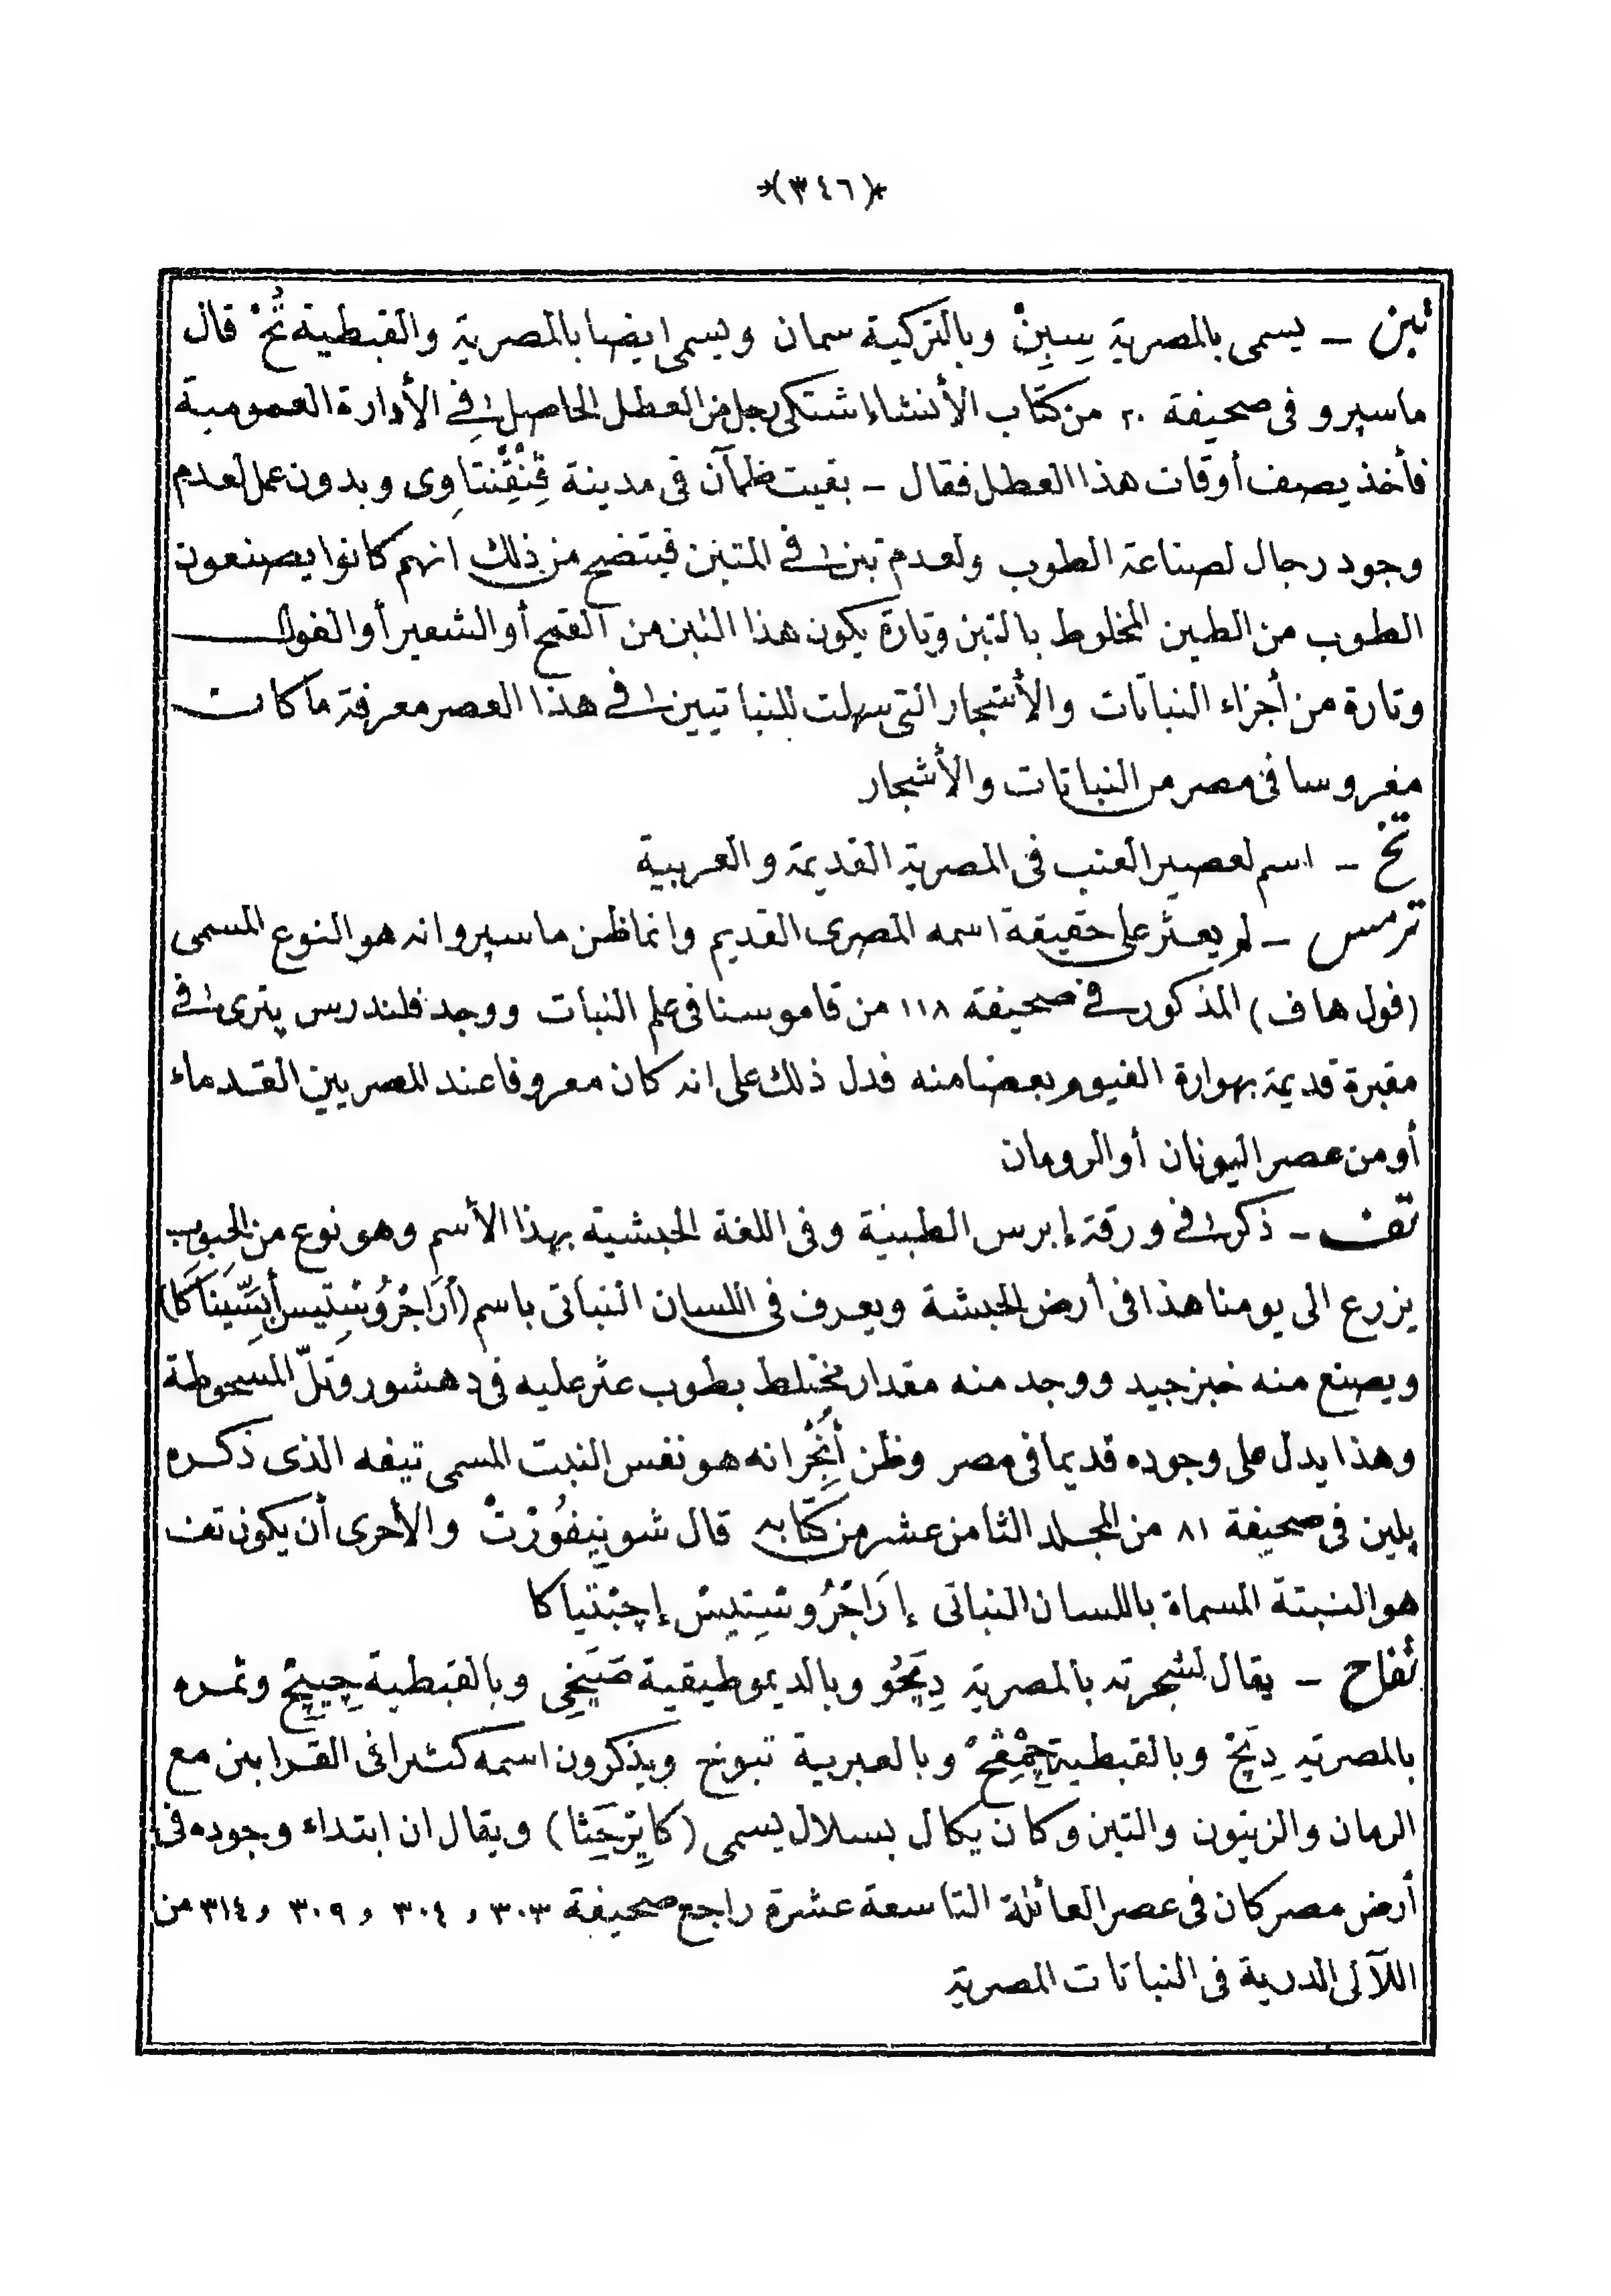 *(٣٤٦)*
تبن ـ يسمى بالمصرية سِبِنْ وبالتركية سمان ويسمى ايضا بالمصرية والقبطية تُحْ قال
ماسپرو فى صحيفة ٢٠ من كتاب الأنشاء اشتكى رجل من العطل الحاصل فى الأدارة العمومية
فأخذ يصف أوقات هذا العطل فقال ـ بقيت ظمآن فى مدينة قِنْقِنْتاوِى وبدون عمل لعدم
وجود رجال لصناعة الطوب ولعدم تبن فى المتبن فيتضح من ذلك انهم كانوا يصنعون
الطوب من الطين المخلوط بالتبن وتارة يكون هذا التبن من القمح أو الشعير أو الفول
وتارة من أجزاء النباتات والأشجار التى سهلت للنباتيين فى هذا العصر معرفة ما كانت
مغروسا فى مصر من النباتات والأشجار
تخ ـ اسم لعصير العنب فى المصرية القديمة والعربية
ترمس ـ لم يعثر على حقيقة اسمه المصرى القديم وانما ظن ماسپرو انه هو النوع المسمى
(فول هاف) المذكور فى صحيفة ١١٨ من قاموسنا فى علم النبات ووجد فلندرس پترى فى
مقبرة قديمة بهوارة الفيوم بعضا منه فدل ذلك على انه كان معروفا عند المصريين القدماء
أو من عصر اليونان أو الرومان
تف ـ ذكر فى ورقة إبرس الطبية وفى اللغة الحبشية بهذا الأسم وهو نوع من الحبوب
يزرع الى يومنا هذا فى أرض الحبشة ويعرف فى اللسان النباتى باسم (أَرَاجْرُوسْتِيس أَبِسِّينَاكَا)
ويصنع منه خبز جيد ووجد منه مقدار مختلط بطوب عثر عليه فى دهشور وتلّ المسخوطة
وهذا يدل على وجوده قديما فى مصر وظن أُنْجِرْ انه هو نفس النبت المسمى تيفه الذى ذكره
پلين فى صحيفة ٨١ من المجلد الثامن عشر من كتابه قال شوينِيفُورْتْ والأحرى أن يكون تف
هو النبتة المسماة باللسان النباتى إِرَاجْرُوسْتِيسْ إِجِبْتيا كا
تفاح ـ يقال لشجرته بالمصرية دِپَحُو وبالديموطيقية وبالقبطية وثمره
بالمصرية دِپَحْ وبالقبطية وبالعبرية تبوخ ويذكرون اسمه كثيرا فى القرابين مع
الرمان والزيتون والتين وكان يكال بسلال يسمى ويقال ان ابتداء وجوده فى
أرض مصر كان فى عصر العائلة التاسعة عشرة راجع صحيفة ٣٠٣ و ٣٠٤ و ٣٠٩ و ٣١٤ من
اللآلى الدرية فى النباتات المصرية